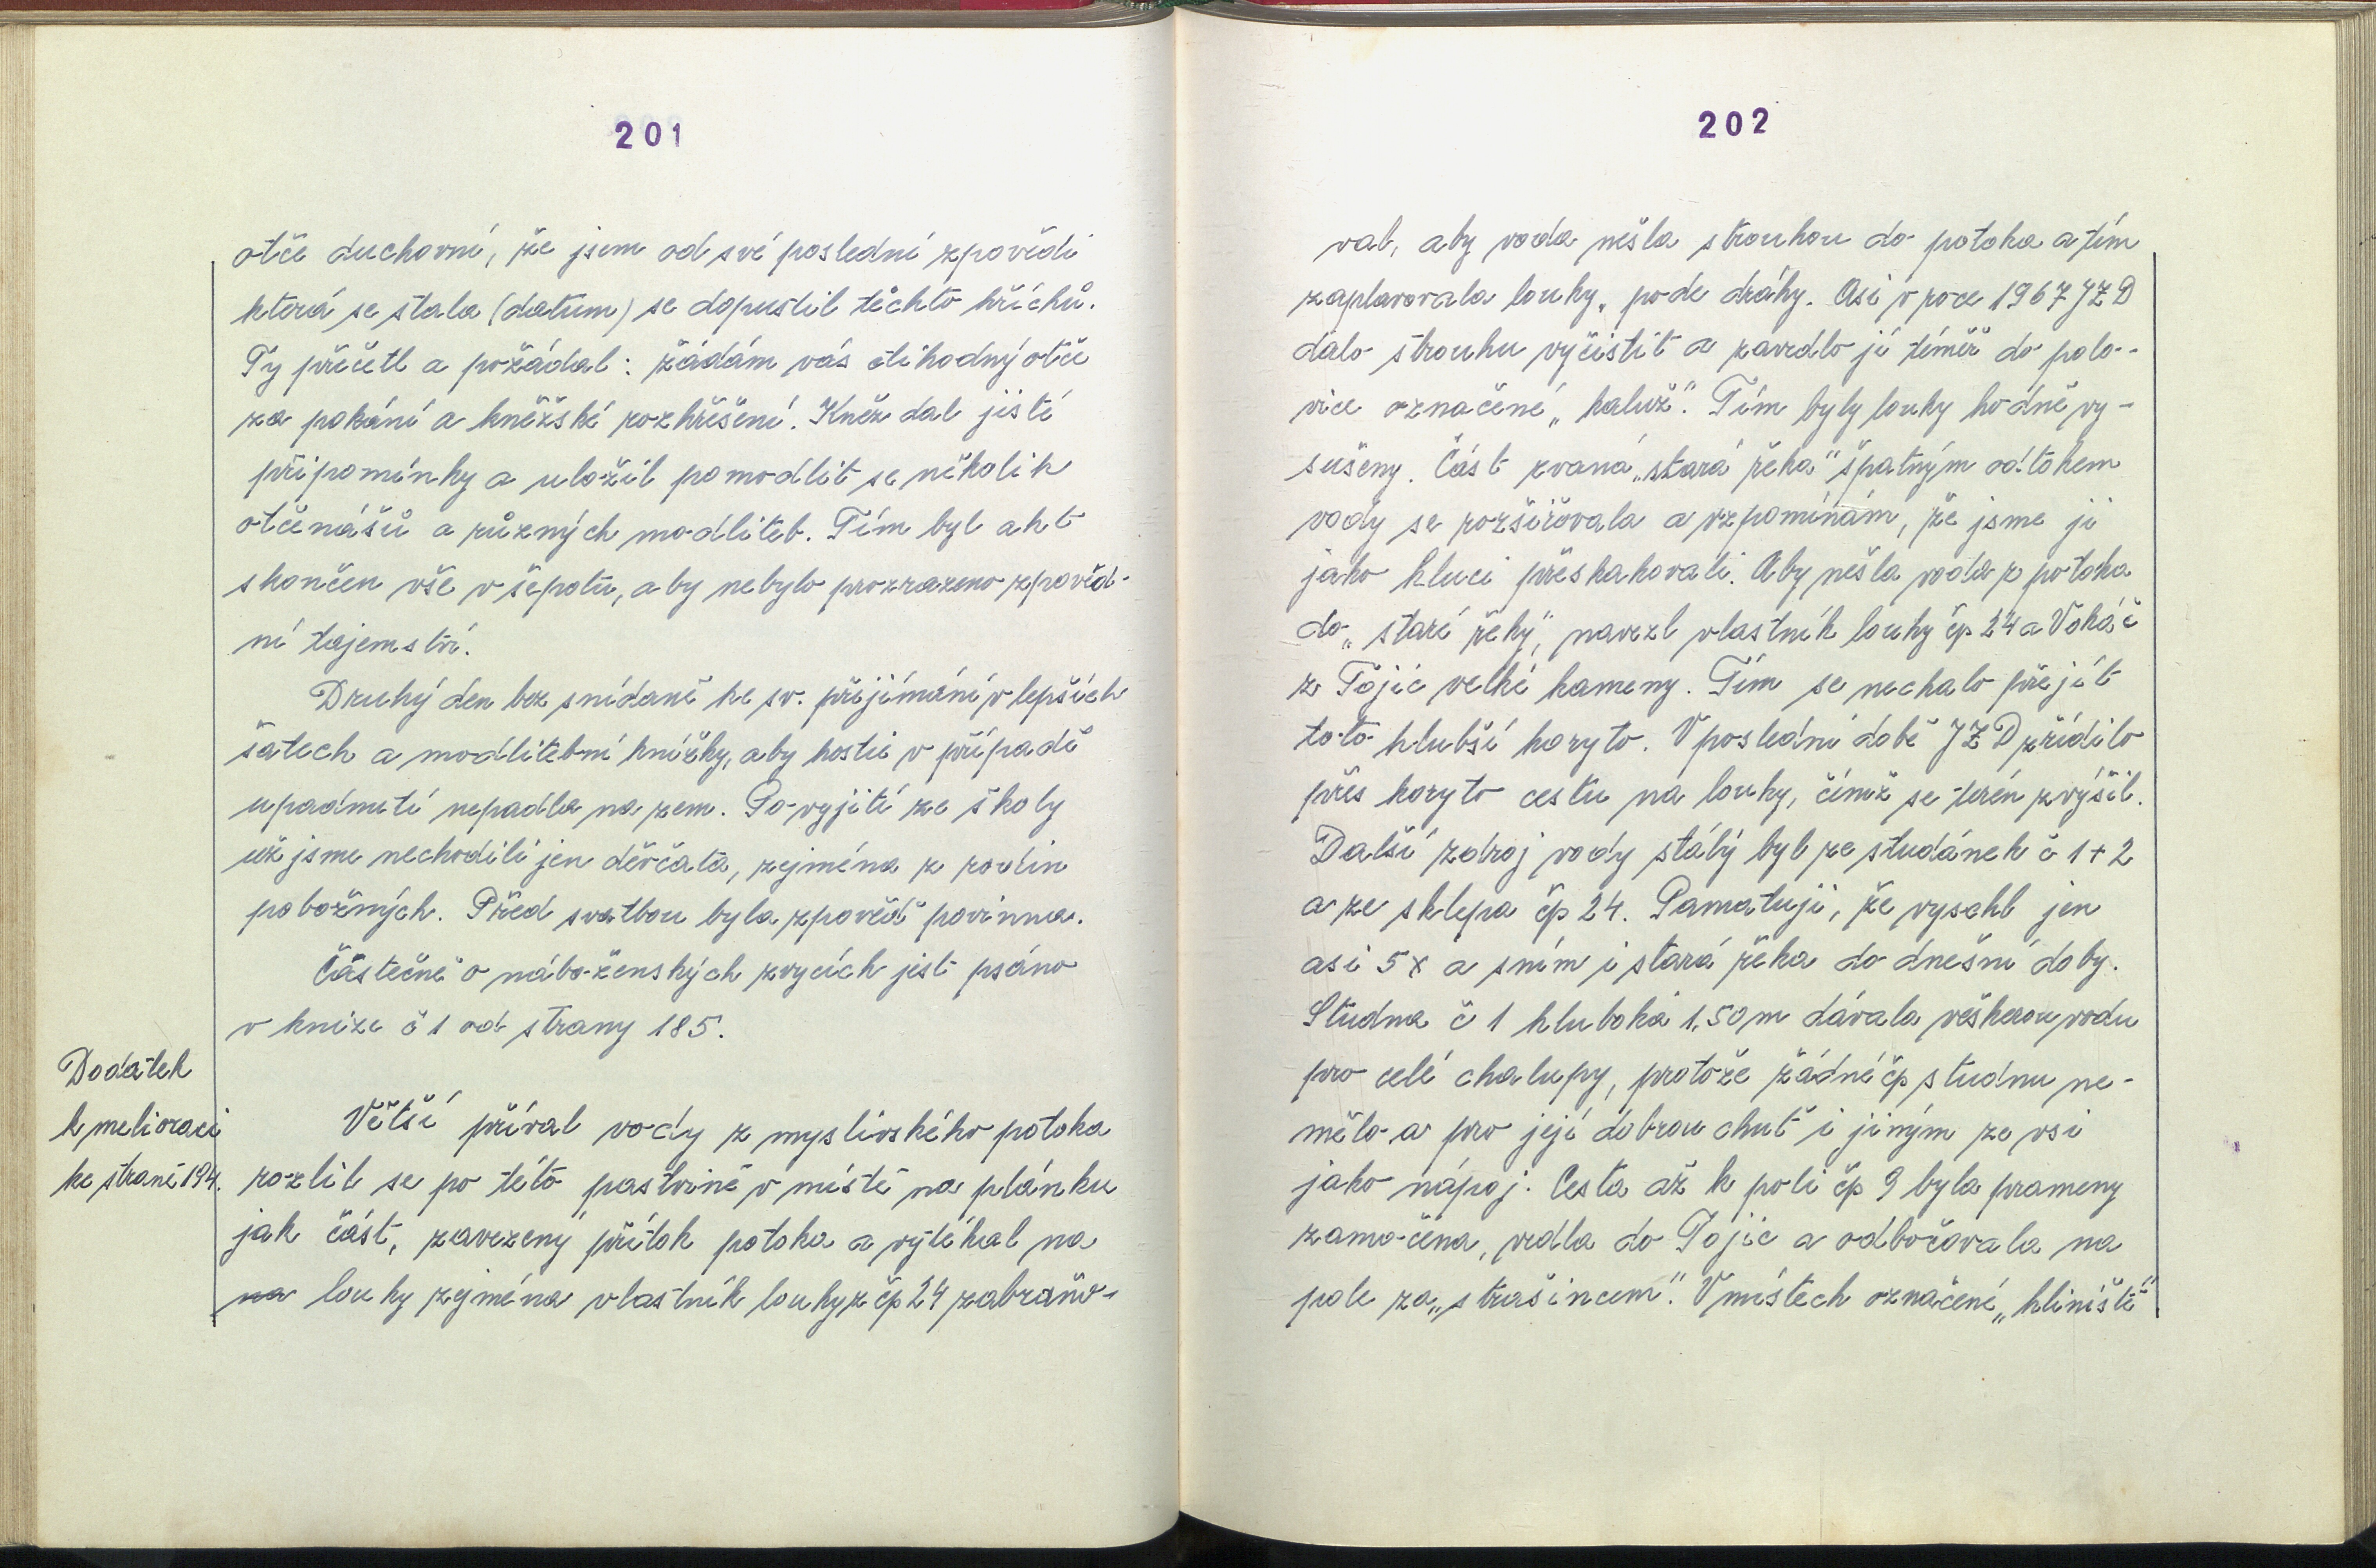 201
otče duchovní, že jsem od své poslední zpovědi
která se stala (datum) se dopustil těchto hříchů.
Ty přečetl a požádal: žádám vás ctihodný otče
za pokání a kněžské rozhřešení. Kněz dal jisté
připomínky a uložil pomodlit se několik
otčenášů a různých modliteb. Tím byl akt
skončen vše v šepotu, aby nebylo prozrazeno zpověd-
ní tajemství.
Druhý den bez snídaně ke sv. přijímání v lepších
šatech a modlitební knížky, aby hostie v případě
upadnutí nepadla na zem. Po vyjití ze školy
už jsme nechodili jen děvčata, zejména z rodin
pobožných. Před svatbou byla zpověď povinna.
Částečně o náboženských zvycích jest psáno
v knize č 1 od strany 185.
Dodatek
k melioraci
ke straně 194.
Větší příval vody z myslivského potoka
rozlil se po této pastvině v místě na plánku
jak část, zavezený přítok potoka a vytékal na
na louky zejména vlastník louky z čp 24 zabraňo-
202
val, aby voda nešla strouhou do potoka a tím
zaplavovala louky, pode dráhy. Asi v roce 1967 JZD
dalo strouhu vyčistit a zavedlo ji téměř do polo-
vice označené „kaluž". Tím byly louky hodně vy-
sušeny. Část zvaná „stará řeka" špatným odtokem
vody se rozšiřovala a vzpomínám, že jsme ji
jako kluci přeskakovali. Aby nešla voda z potoka
do „staré řeky", navezl vlastník louky čp 24 a Vokáč
z Tojic velké kameny. Tím se nechalo přejít
toto hlubší koryto. V poslední době JZD zřídilo
přes koryto cestu na louky, čímž se terén zvýšil.
Další zdroj vody stálý byl ze studánek č 1 + 2
a ze sklepa čp 24. Pamatuji, že vyschl jen
asi 5 x a sním i stará řeka do dnešní doby.
Studna č 1 hluboká 1,50 m dávala veškerou vodu
pro celé chalupy, protože žádné čp studnu ne-
mělo a pro její dobrou chuť i jiným ze vsi
jako nápoj. Cesta až k poli čp 9 byla prameny
zamočena, vedla do Tojic a odbočovala na
pole za „strašincem". V místech označení „hliniště"